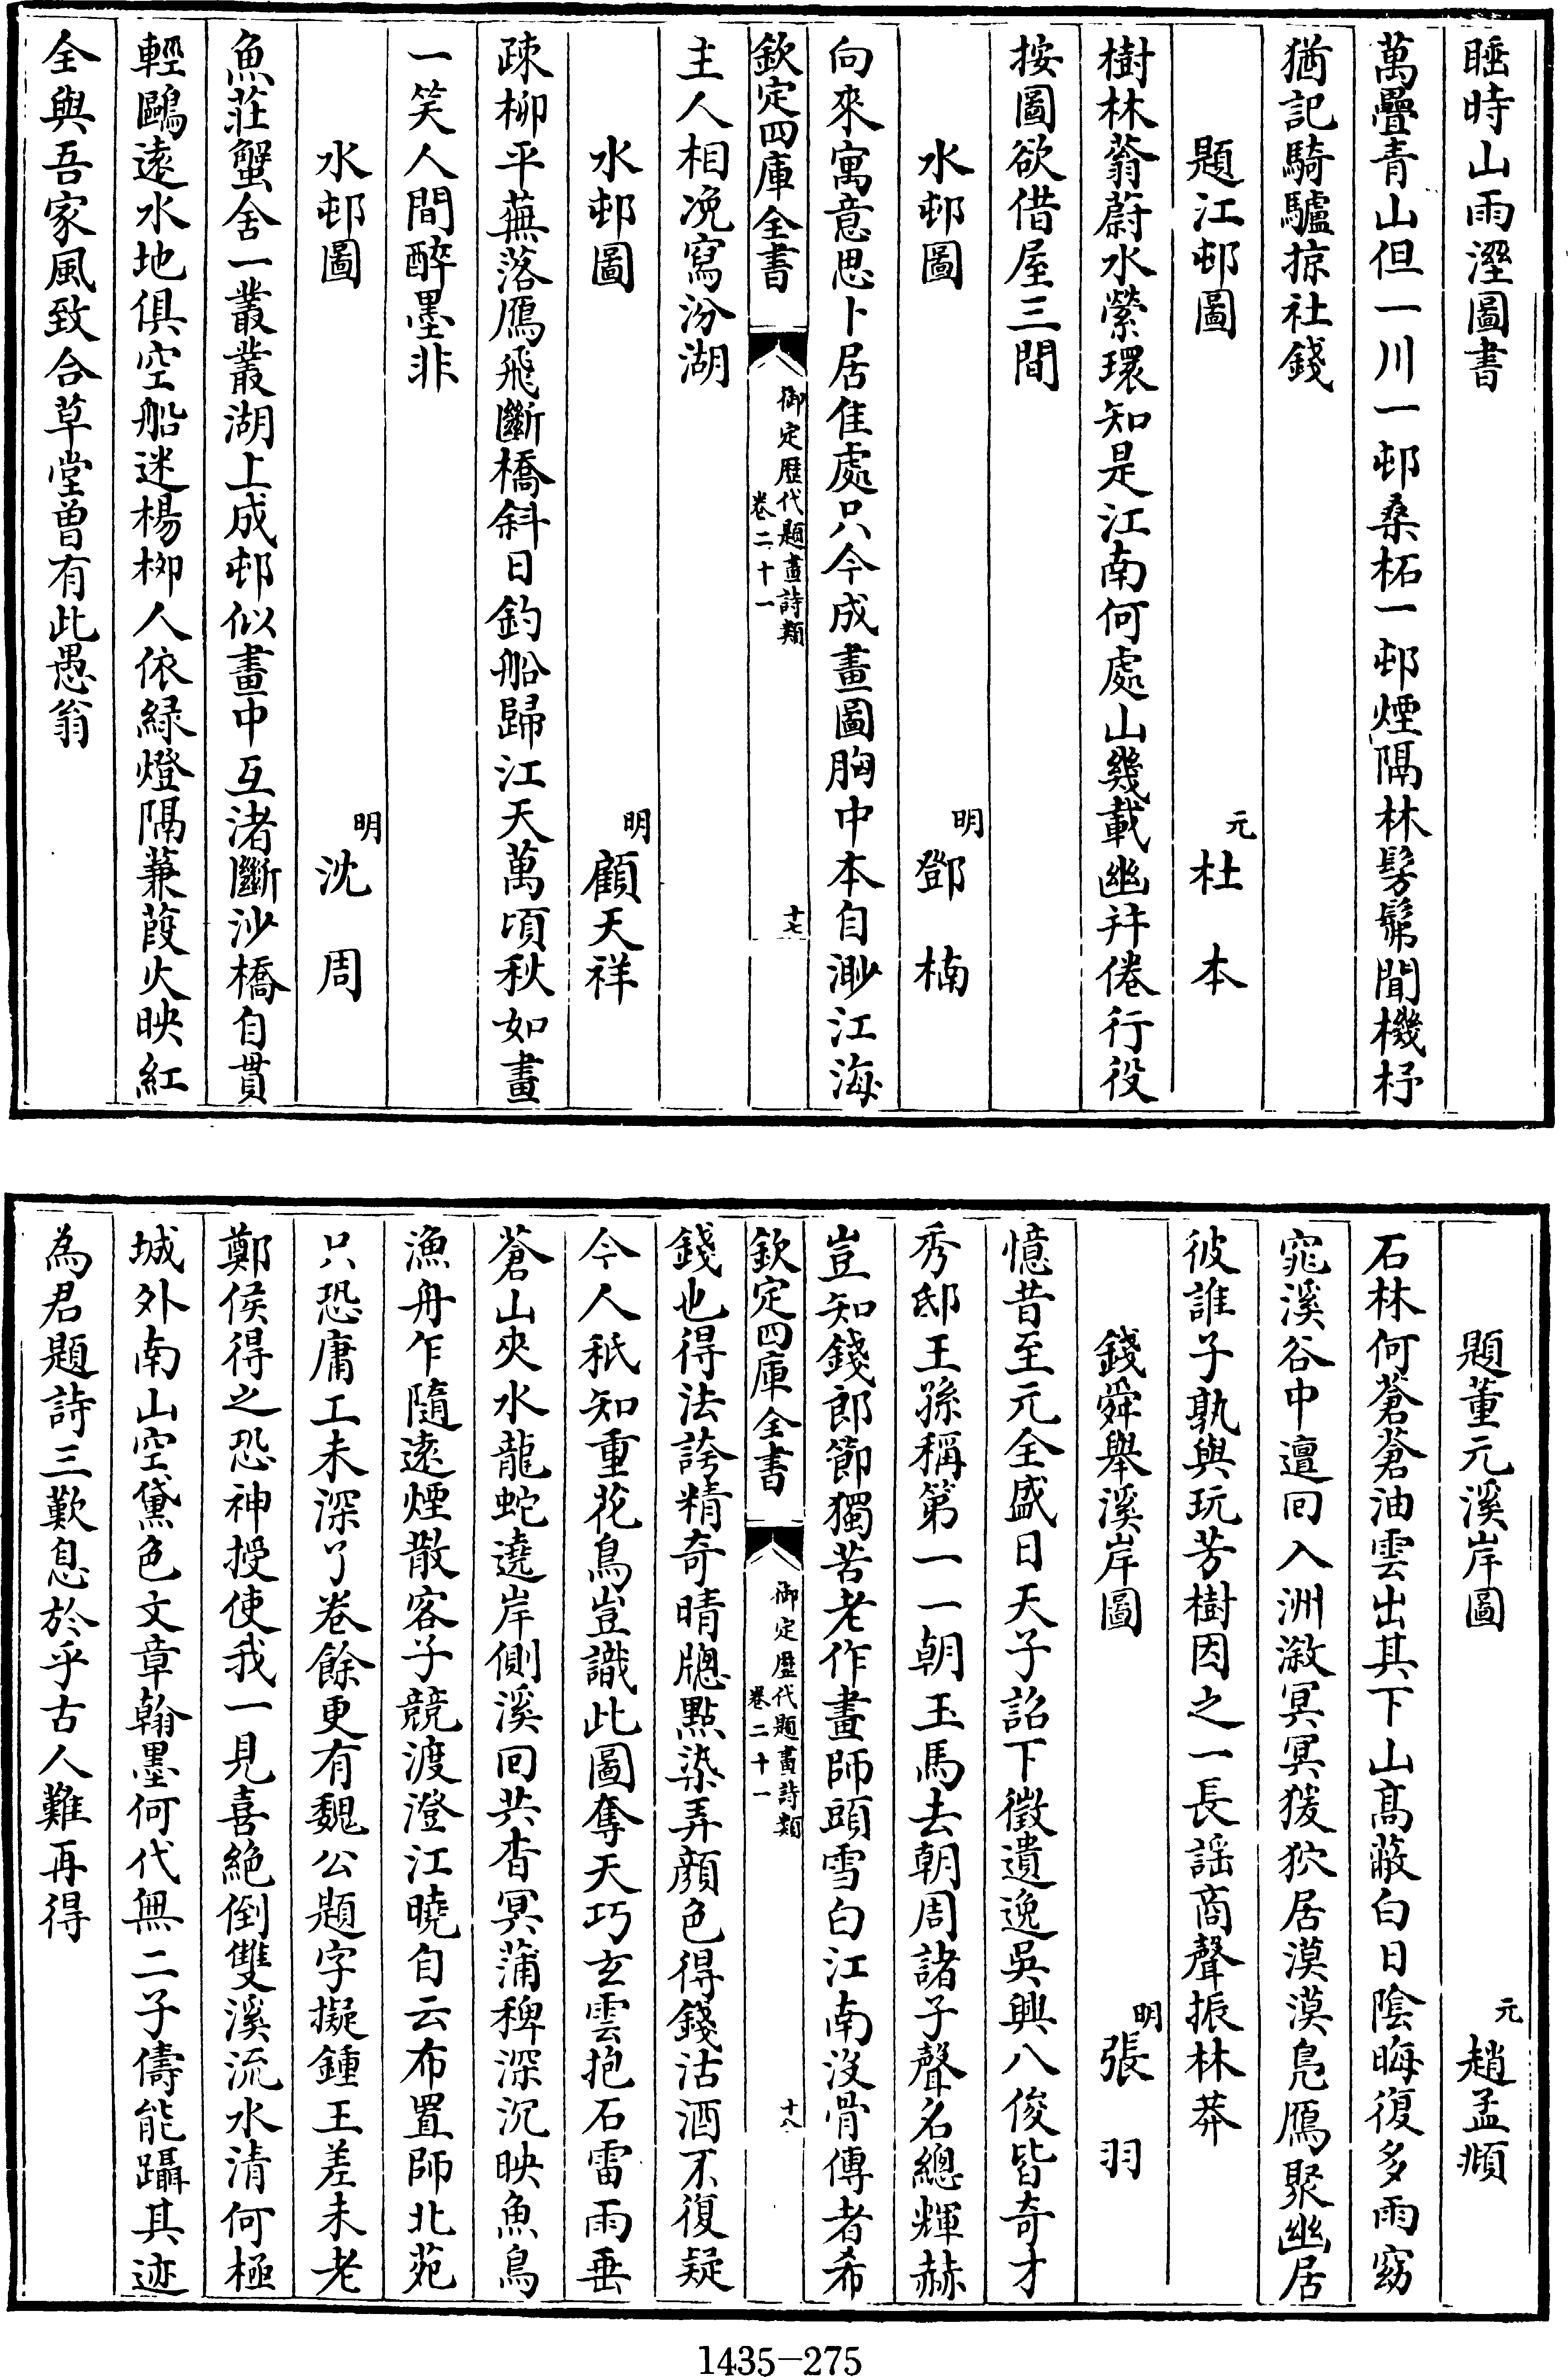 睡時山雨溼圖書
萬疊青山但一川一邨桑柘一邨煙隔林髣髴聞機杼
猶記騎驢掠社錢
題江邨圖　元杜本
樹林蓊蔚水縈環知是江南何處山幾載幽并倦行役
按圖欲借屋三間
水邨圖　明鄧楠
向來寓意思卜居隹處只今成畫圖胸中本自渺江海
欽定四庫全書　御定歴代題畫詩類卷二十一　十七
主人相况寫汾湖
水邨圖　明顧天祥
疎栁平蕪落鴈飛斷橋斜日釣船歸江天萬頃秋如畫
一笑人間醉墨非
水邨圖　明沈周
魚莊蟹舍一叢叢湖上成邨似畫中互渚斷沙橋自貫
輕鷗遠水地俱空船迷楊栁人依緑燈隔蒹葭火映紅
全與吾家風致合草堂曽有此愚翁
題董元溪岸圖　元趙孟頫
石林何蒼蒼油雲出其下山髙蔽白日陰晦復多雨窈
窕溪谷中邅回入洲溆冥冥猨狖居漠漠鳬鴈聚幽居
彼誰子孰與玩芳樹因之一長謡商聲振林莽
錢舜舉溪岸圖　明張羽
憶昔至元全盛日天子詔下徵遺逸吳興八俊皆奇才
秀邸王孫稱第一一朝玉馬去朝周諸子聲名總輝赫
豈知錢郎節獨苦老作畫師頭雪白江南沒骨傳者希
欽定四庫全書　御定歴代題畫詩類卷二十一　十八
錢也得法誇精奇晴牕點染弄顔色得錢沽酒不復疑
今人秪知重花鳥豈識此圖奪天巧玄雲抱石雷雨垂
蒼山夾水龍蛇遶岸側溪回共杳冥蒲稗深沉映魚鳥
漁舟乍隨遠煙散客子競渡澄江曉自云布置師北苑
只恐庸工未深了卷餘更有魏公題字擬鍾王差未老
鄭侯得之恐神授使我一見喜絶倒雙溪流水清何極
城外南山空黛色文章翰墨何代無二子儔能躡其迹
為君題詩三歎息於乎古人難再得
1435-275